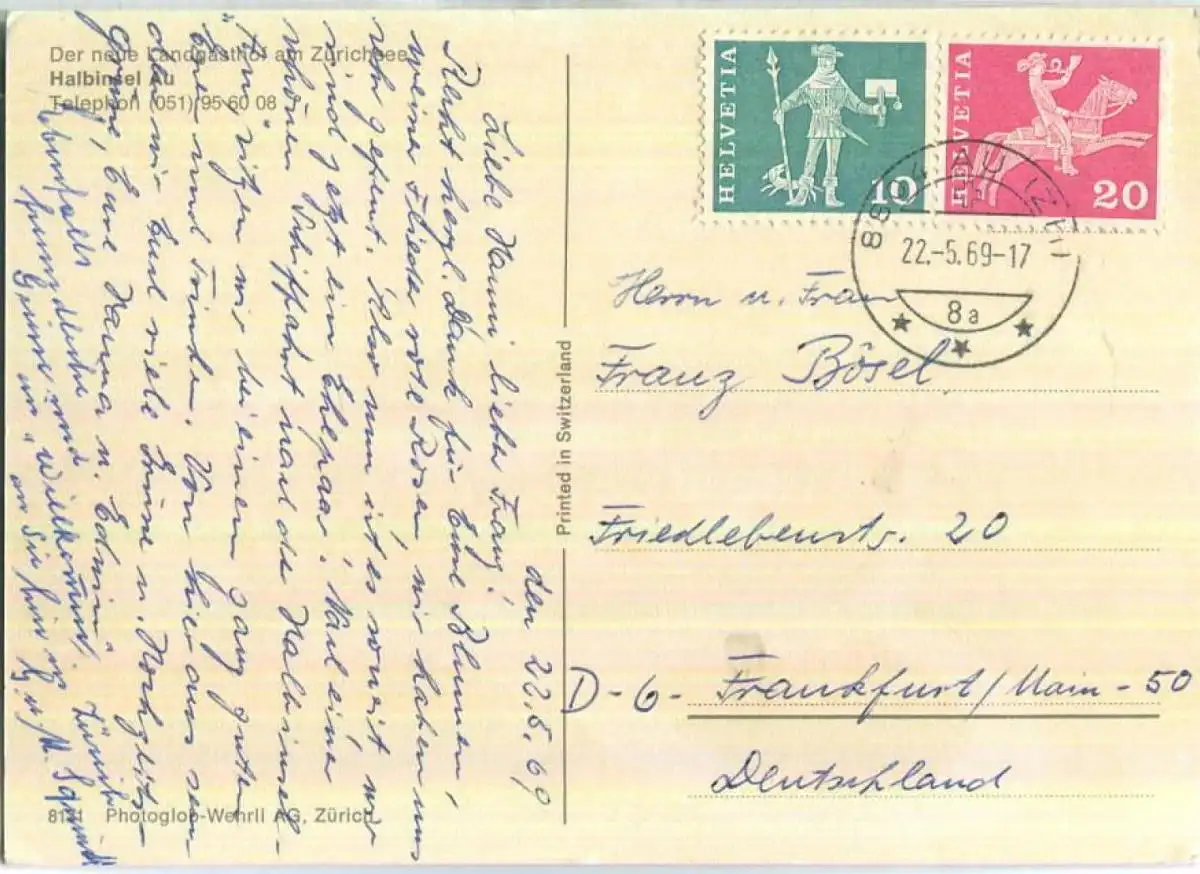 Der neue Landgasthof am Zürichsee
Halbinsel Au
Telephon (051) 95 60 08
den 22.5.69
Liebe Hanni, liebe Franz!
Recht herzl. Dank für Eure Blumen,
weiner Flieder rote Rosen, wir haben uns
sehr gefreut. Also nun ist es soweit, wir
sind jetzt ein Ehepaar. Nach einer
schönen Schiffahrt nach der Halbinsel
"Au" sitzen wir bei einem ganz guten
Essen und Trinken. Von hier aus sen-
den wir Euch viele Grüsse u. Nochglück-
Eure Hanna u. Edwin
Ebenfalls
freundliche und
Grüsse
8131 Photoglob-Wehrli AG, Zürich
Printed in Switzerland
HELVETIA
10
HELVETIA
20
8804 AU (ZH)
22.-5.69-17
8a
Herrn u. Frau
Franz Bösel
Friedlebenstr. 20
D-6- Frankfurt/Main-50
Deutschland